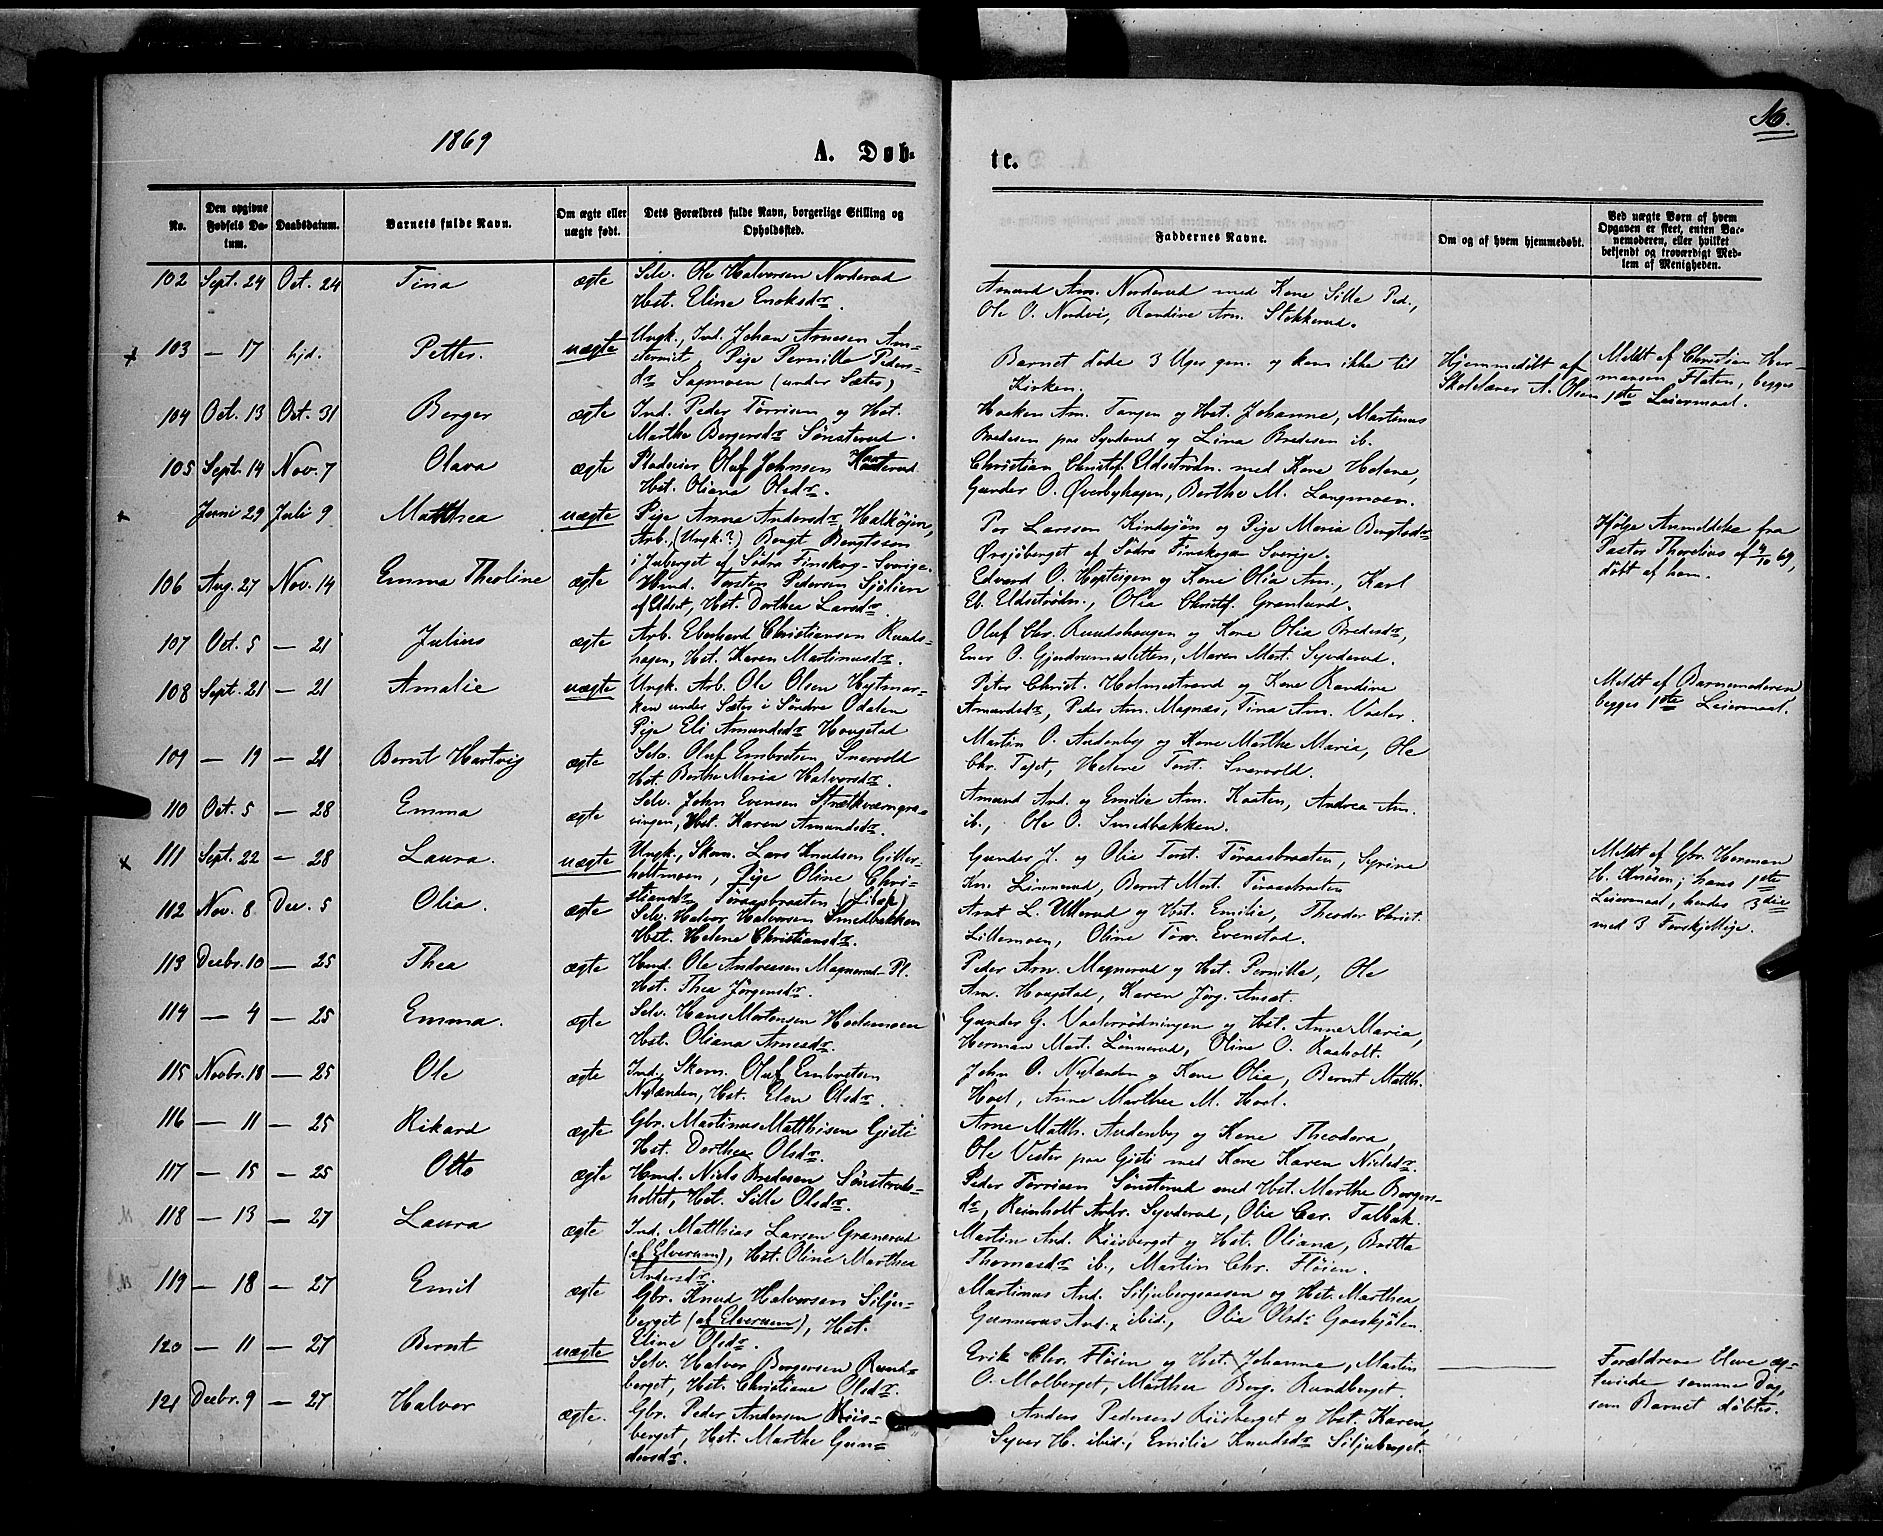 1869
A. Døb-
te.
16.
No.
Den opgivne Fødsels Da-tum.
Daabsdatum.
Barnets fulde Navn.
Om ægte eller uægte født.
Dets Forældres fulde Navn, borgerlige Stilling og Opholdssted.
Faddernes Navne.
Om og af hvem hjemmedøbt.
Ved uægte Børn af hvem Opgaven er skeet, enten Bar-nemoderen, eller hvilket bekjendt og troværdigt Med-lem af Menigheden.
102 Sept. 24 Oct. 24 Tina ægte
Selv. Ole Halvorsen Norderud
Hst. Eline Enoksdr.
Amund Am. Norderud med Kone Sille Ped.,
Ole O. Nordvi, Randine Am. Stokkerud.
103 — 17 hjd. Petter. uægte
Ungk., Ind. Johan Arnesen
Pige Pernille Peders-
dr. Sagmoen (under Sæter)
Barnet døde 3 Uger gm. og kom ikke til
Kirken.
Hjemmedøbt af
Skolelærer A. Olsen
Meldt af Christian Her-
mansen Flaten, begges
1ste Leiermaal.
104 Oct. 13 Oct. 31 Berger ægte
Ind. Peder Torrisen og Hst.
Marthe Bergersdr. Sønsterud.
Haaken Am. Tangen og Hst. Johanne, Martinus
Bredesen paa Syverud og Lina Bredesen ib.
105 Sept. 14 Nov. 7 Olava ægte
Pladseier Oluf Johnsen
Hst. Oliana Olsdr.
Christian Christof. Eldstrødn. med Kone Helene,
Gunder O. Øverbyhagen, Berthe M. Langmoen.
Juni 29 Juli 9 Matthea uægte
Pige Anna Andersdr. Halsjøen,
Arb. (Ungk.?) Bengt Bengtsson
i Juberget af Södra Finskog - Sverige.
Per Larsson Kindsjön og Pige Maria Bengtsdr.
Örsjöberget af Södra Finskoga Sverige.
Ifølge Anmeldelse fra
Pastor Thorelius af 4/10 69,
døbt af ham.
106 Aug. 27 Nov. 14 Emma Theoline ægte
Hmd. Torsten Pedersen Sjølien
af Eldset, Hst. Dorthea Larsdr.
Edvard O. Heptesigen og Kone Olia Am., Karl
Eb. Eldstrødn., Olia Christof. Granlund.
107 Oct. 5 — 21 Julius ægte
Arb. Eberhard Christiansen Runds-
haugen, Hst. Karen Martinusdr.
Oluf Chr. Rundshaugen og Kone Olia Bredesdr,
Ener O. Gjendrumsletten, Maren Mart. Syverud.
108 Sept. 21 — 21 Amalie uægte
Ungk. Arb. Ole Olsen Hytmar-
ken under Sæter i Søndre Odalen
Pige Eli Amundsdr. Hougstad
Peter Christ. Holmestrand og Kone Randine
Amundsdr., Peder Am. Magnæs, Tina Am. Vaaler.
Meldt af Barnemoderen,
begges 1ste Leiermaal.
109 — 19 — 21 Bernt Hartvig ægte
Selv. Oluf Embretsen Snarvold
Hst. Berthe Maria Halvorsdr.
Martin O. Audenby og Kone Marthe Maria, Ole
Chr. Tajet, Helene Torst. Snarvold.
110 Oct. 5 — 28 Emma ægte
Selv. John Evensen Strætkværngra-
vingen, Hst. Karen Amundsdr.
Amund And. og Emilie Am. Kaaten, Andrea Am.
ib., Ole O. Smedbakken.
111 Sept. 22 — 28 Laura. uægte
Ungk., Skom. Lars Knudsen Gitter-
holtmoen, Pige Oline Chri-
stiansdr. Toraasbraaten
Gunder J. og Olia Torst. Toraasbraaten, Syrine
Kn. Linnerud, Bernt Mart. Toraasbraaten
Meldt af Gbr. Herman
H. Knøsen; hans 1ste
Leiermaal, hendes 3die
med 3 Forskjellige.
112 Nov. 8 Dec. 5 Olia. ægte
Selv. Halvor Halvorsen Smedbakken
Hst. Helene Christiansdr.
Arnt L. Ullerud og Hst. Emilie, Theodor Christ.
Lillemoen, Oline Torr. Evenstad.
113 Decbr. 10 — 25 Thea ægte
Hmd. Ole Andreasen Magnerud Pl.
Hst. Thea Jørgensdr.
Peder Am. Magnerud og Hst. Pernille, Ole
Am. Hougstad, Karen Jørg. Ansæt.
114 — 4 — 25 Emma. ægte
Selv. Hans Mortensen Hoelsmoen
Hst. Oliana Arnesdr.
Gunder G. Vaalerrødningen og Hst. Anne Maria,
Herman Mart. Linnerud, Oline O. Raaholt.
115 Novbr. 18 — 25 Ole ægte
Ind., Skom. Oluf Embretsen
Nylænden, Hst. Elen Olsdr.
John O. Nylænden og Kone Olia, Bernt Matth.
Hoel, Anne Marthea M. Hoel.
116 — 11 — 25 Rikard ægte
Gbr. Martinus Matthisen Gjeti
Hst. Dorthea Olsdr.
Arne Matth. Audenby og Kone Theodora,
Ole Vester paa Gjeti med Kone Karen Nielsdr.
117 — 15 — 25 Otto ægte
Hmd. Niels Bredesen Sønsteruds-
holtet, Hst. Sille Olsdr.
Peder Torrisen Sønsterud med Hst. Marthe Bergers-
dr., Reinholt Ambr. Syverud, Olia Car. Talbak.
118 — 13 — 27 Laura ægte
Ind. Matthias Larsen Granerud
(af Elverum), Hst. Oline Marthea
Andersdr.
Martin And. Riisberget og Hst. Oliana, Berthe
Thomasdr. ib., Martin Chr. Fløien.
119 — 18 — 27 Emil ægte
Gbr. Knud Halvorsen Silju-
berget (af Elverum), Hst.
Eline Olsdr.
Martinus And. Siljubergsaasen og Hst. Marthea
Gunnerus And. ibid., Olia Olsdr. Gaaskjølen.
120 — 11 — 27 Bernt uægte
Selv. Halvor Bergersen Rund-
berget, Hst. Christiane Olsdr.
Erik Chr. Fløien og Hst. Johanne, Martin
O. Molberget, Marthea Berg. Rundberget.
Forældrene bleve æg-
teviede samme Dag,
som Barnet døbtes.
121 Decbr. 9 — 27 Halvor ægte.
Gbr. Peder Andersen Riis-
berget, Hst. Marthe Gun-
dersdr.
Anders Pedersen Riisberget og Hst. Karen,
Syver H. ibid., Emilie Knudsdr. Siljuberget.